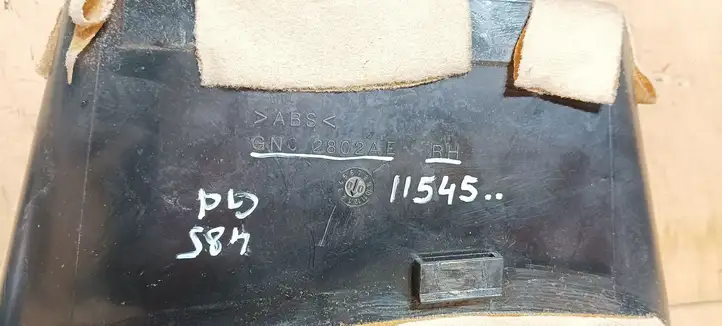 >ABS<
GNC 2802AE RH
11545..
485